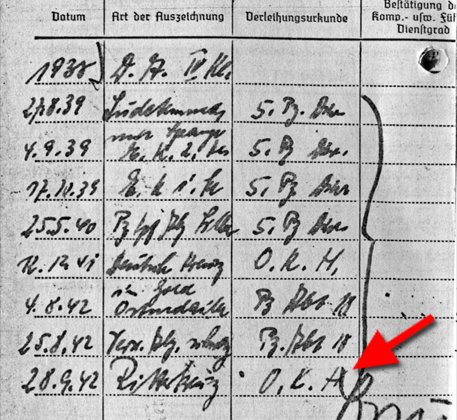 Bestätigung d
Datum Art der Auszeichnung Verleihungsurkunde Komp.- usw. Fü
Dienstgrad
1938 D. A. IV Kl.
27.8.39 5. Pz. Div
4.9.39 E. K. 2. Kl 5. Pz Div.
17.11.39 E. K. 1. Kl 5. Pz Div
25.5.40 5. Pz Div
12.12.41 Deutsch Kreuz O. K. H.
in Gold
4.8.42 Ostmedaille Pz Abt. 18
25.8.42 Verw. Abz. Pz. Abt 18
28.9.42 Ritterkreuz O. K. H